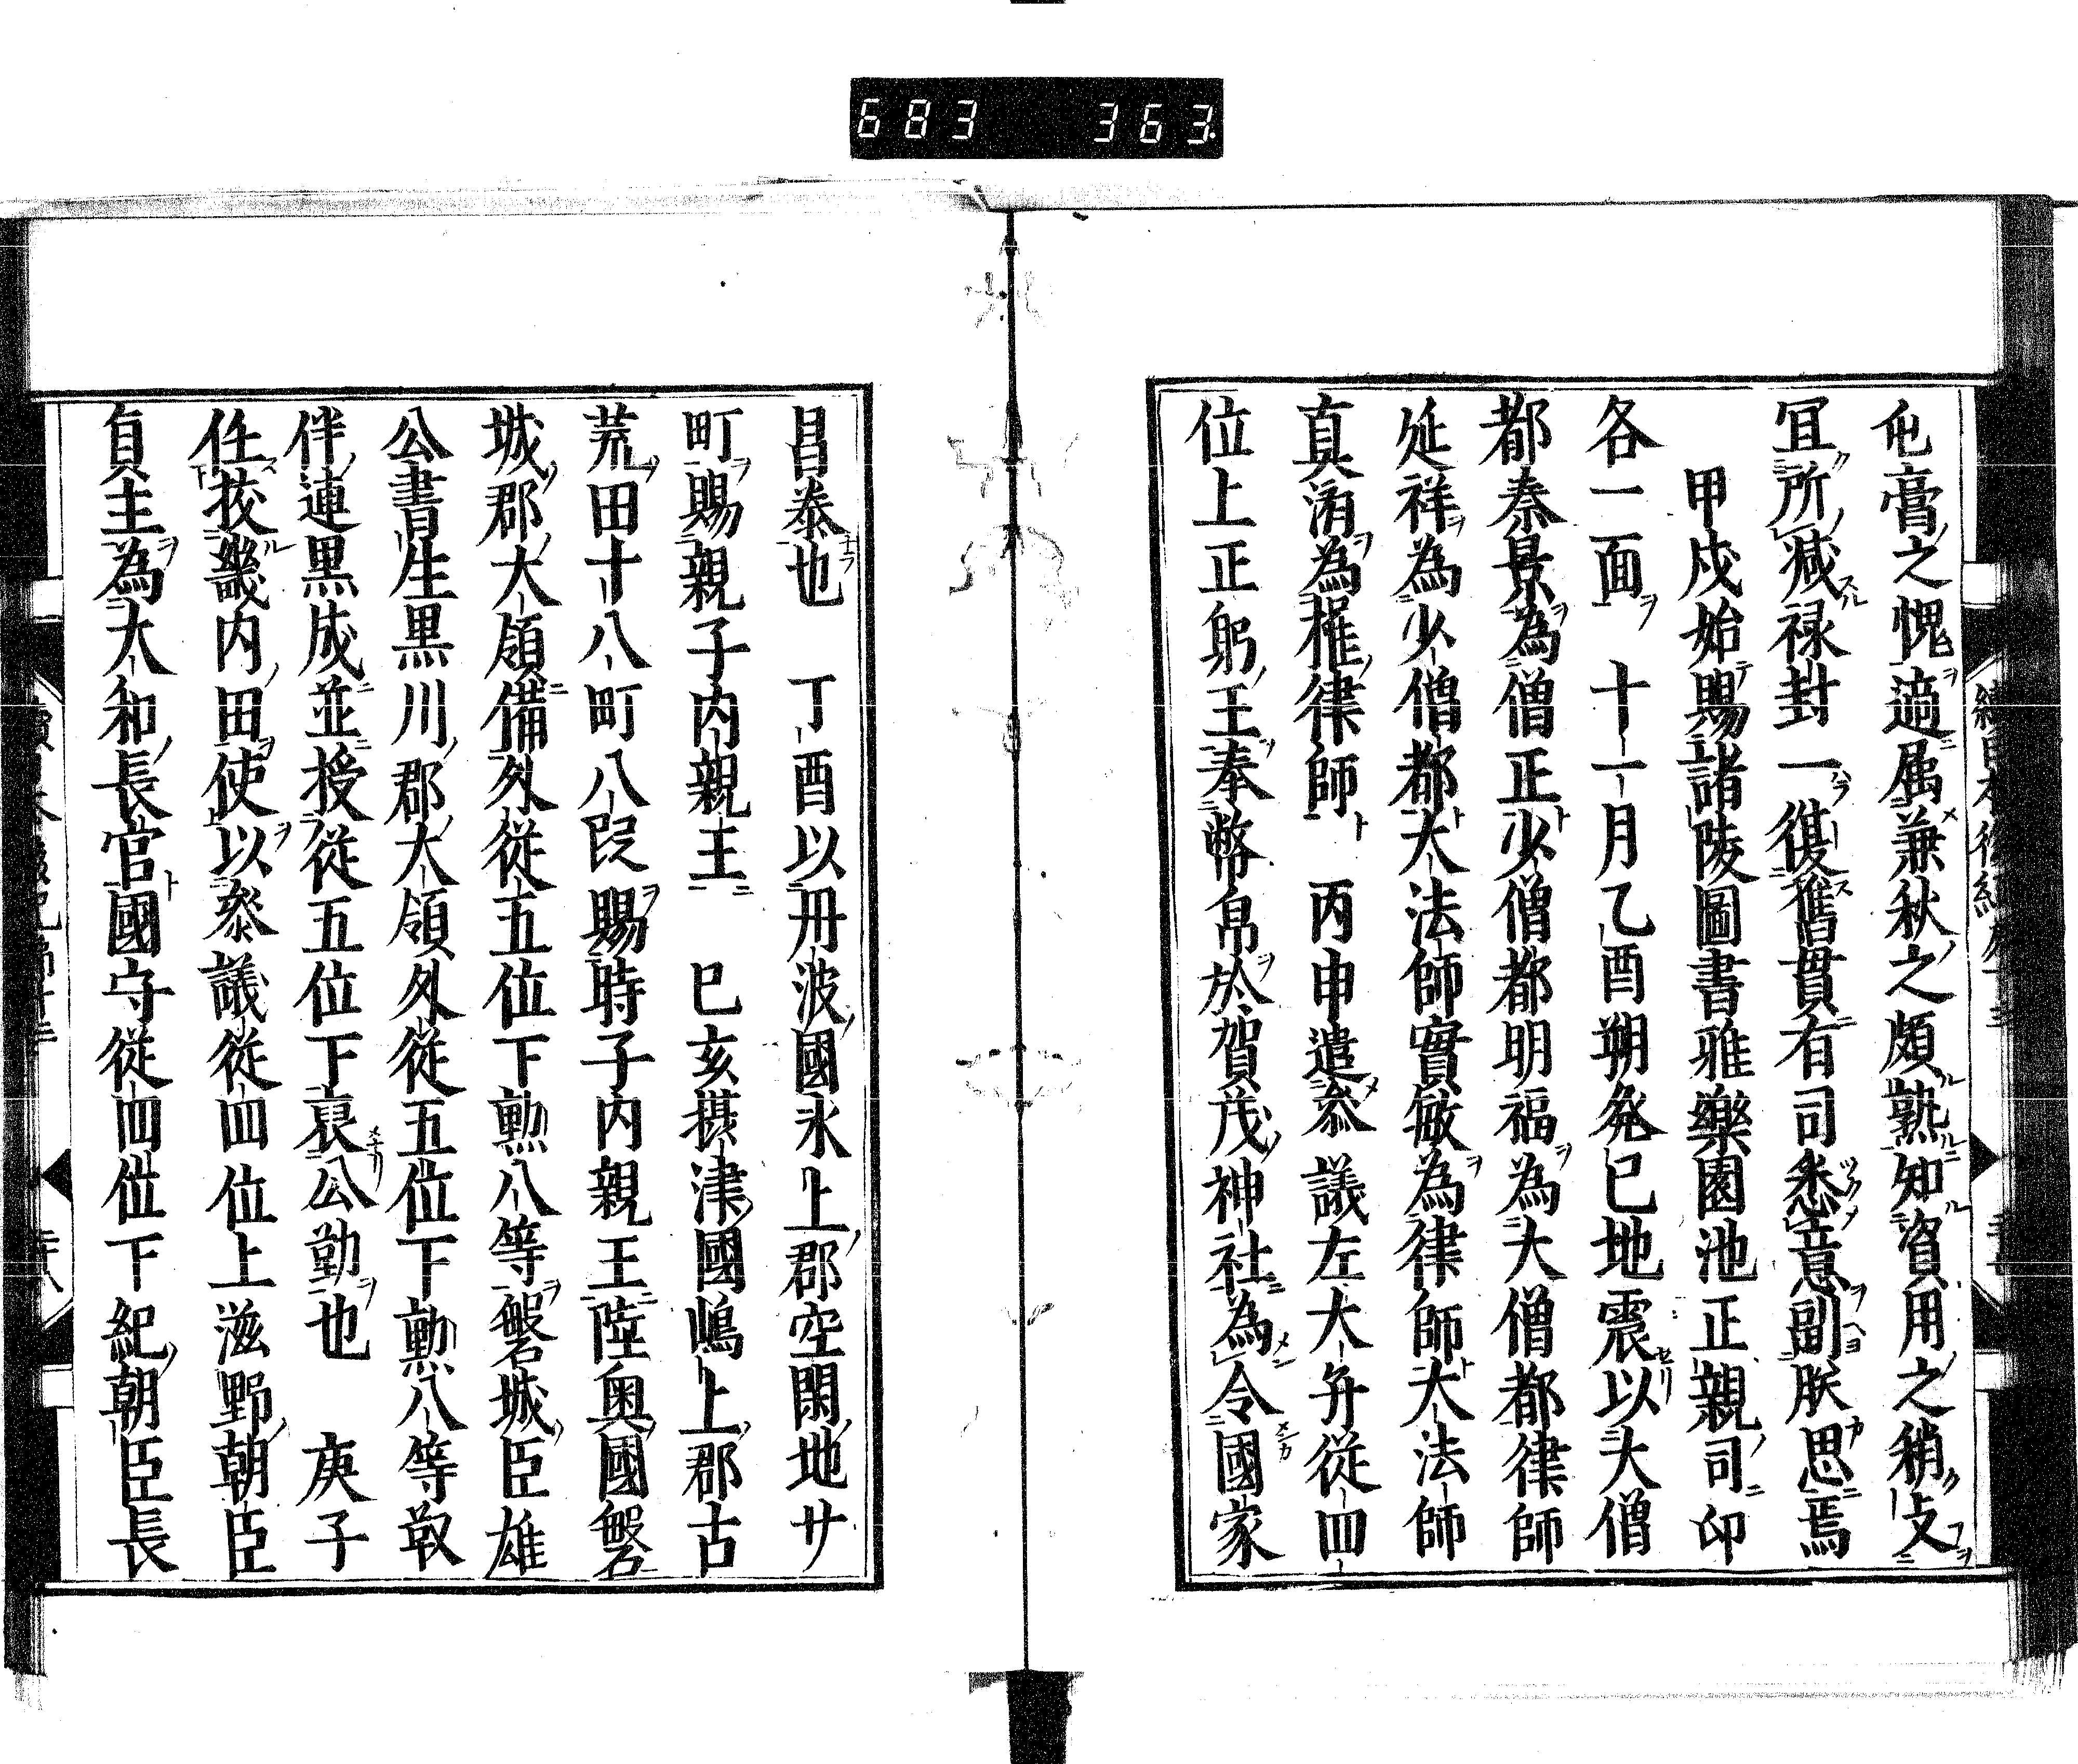 683 363
㐌膏之愧適属兼秋之頗熟知資用之稍支
冝所减禄封一復舊貫有司悉意副朕思焉
甲戌始賜諸陵圖書雅樂園池正親司印
各一面 十一月乙酉朔癸巳地震以大僧
都泰景為僧正少僧都明福為大僧都律師
延祥為少僧都大法師實敏為律師大法師
真濟為權律師 丙申遣参議左大弁從四
位上正躬王奉幣帛於賀茂神社為令國家
昌泰也 丁酉以丹波國氷上郡空閑地廿
町賜親子内親王 己亥攝津國嶋上郡古
荒田十八町八段賜時子内親王陸奥國磐
城郡大領借外從五位下勲八等磐城臣雄
公書生黒川郡大領外從五位下勲八等靫
伴連黒成並授從五位下褒公勤也 庚子
任挍畿内田使以参議從四位上滋野朝臣
貞主為大和長官國守從四位下紀朝臣長